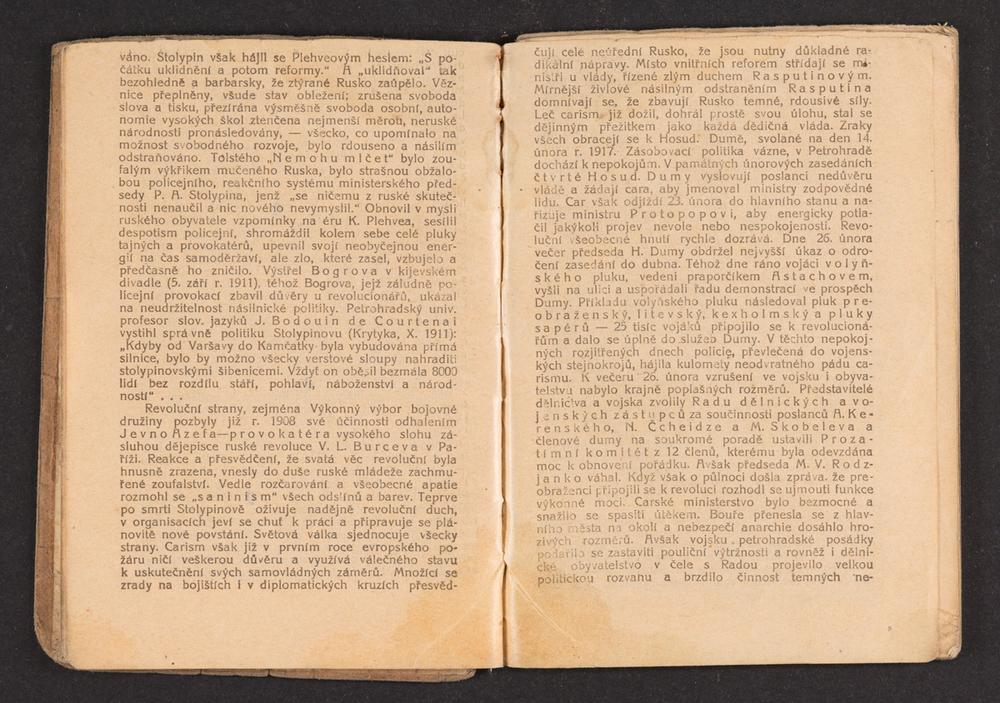 váno. Stolypin však hájil se Plehveovým heslem: „S po-
čátku uklidnění a potom reformy.“ A „uklidňoval“ tak
bezohledně a barbarsky, že ztýrané Rusko zaúpělo. Věz-
nice přeplněny, všude stav obležení; zrušena svoboda
slova a tisku, přezírána výsměšně svoboda osobní, auto-
nomie vysokých škol ztenčena nejmenší měrou, neruské
národnosti pronásledovány, — všecko, co upomínalo na
možnost svobodného rozvoje, bylo rdouseno a násilím
odstraňováno. Tolstého „Nemohu mlčet“ bylo zou-
falým výkřikem mučeného Ruska, bylo strašnou obžalo-
bou policejního, reakčního systému ministerského před-
sedy P. A. Stolypina, jenž „se ničemu z ruské skuteč-
nosti nenaučil a nic nového nevymyslil.“ Obnovil v mysli
ruského obyvatele vzpomínky na éru K. Plehvea, sesílil
despotism policejní, shromáždil kolem sebe celé pluky
tajných a provokatérů, upevnil svojí neobyčejnou ener-
gií na čas samoděržaví, ale zlo, které zasel, vzbujelo a
předčasně ho zničilo. Výstřel Bogrova v kijevském
divadle (5. září r. 1911), téhož Bogrova, jejž záludně po-
licejní provokací zbavil důvěry u revolucionářů, ukázal
na neudržitelnost násilnické politiky. Petrohradský univ.
profesor slov. jazyků J. Bodouin de Courtenai
vystihl správně politiku Stolypinovu (Krytyka, X. 1911):
„Kdyby od Varšavy do Kamčatky byla vybudována přímá
silnice, bylo by možno všecky verstové sloupy nahraditi
stolypinovskými šibenicemi. Vždyť on oběsil bezmála 8000
lidí bez rozdílu stáří, pohlaví, náboženství a národ-
ností“ . . .
Revoluční strany, zejména Výkonný výbor bojovné
družiny pozbyly již r. 1908 své účinnosti odhalením
Jevno Azefa—provokatéra vysokého slohu zá-
sluhou dějepisce ruské revoluce V. L. Burceva v Pa-
říži. Reakce a přesvědčení, že svatá věc revoluční byla
hnusně zrazena, vnesly do duše ruské mládeže zachmu-
řené zoufalství. Vedle rozčarování a všeobecné apatie
rozmohl se „saninism“ všech odstínů a barev. Teprve
po smrti Stolypinově oživuje nadějně revoluční duch,
v organisacích jeví se chuť k práci a připravuje se plá-
novitě nové povstání. Světová válka sjednocuje všecky
strany. Carism však již v prvním roce evropského po-
žáru ničí veškerou důvěru a využívá válečného stavu
k uskutečnění svých samovládných záměrů. Množící se
zrady na bojištích i v diplomatických kruzích přesvěd-
čují celé neúřední Rusko, že jsou nutny důkladné ra-
dikální nápravy. Místo vnitřních reforem střídají se mi-
nistři u vlády, řízené zlým duchem Rasputinovým.
Mírnější živlové násilným odstraněním Rasputina
domnívají se, že zbavují Rusko temné, rdousivé síly.
Leč carism již dožil, dohrál prostě svou úlohu, stal se
dějinným přežitkem jako každá dědičná vláda. Zraky
všech obracejí se k Hosud. Dumě, svolané na den 14.
února r. 1917. Zásobovací politika vázne, v Petrohradě
dochází k nepokojům. V památných únorových zasedáních
čtvrté Hosud. Dumy vyslovují poslanci nedůvěru
vládě a žádají cara, aby jmenoval ministry zodpovědné
lidu. Car však odjíždí 23. února do hlavního stanu a na-
řizuje ministru Protopopovi, aby energicky potla-
čil jakýkoli projev nevole nebo nespokojenosti. Revo-
luční všeobecné hnutí rychle dozrává. Dne 26. února
večer předseda H. Dumy obdržel nejvyšší úkaz o odro-
čení zasedání do dubna. Téhož dne ráno vojáci volyň-
ského pluku, vedeni praporčíkem Astachovem,
vyšli na ulici a uspořádali řadu demonstrací ve prospěch
Dumy. Příkladu volyňského pluku následoval pluk pre-
obraženský, litevský, kexholmský a pluky
sapérů — 25 tisíc vojáků připojilo se k revolucioná-
řům a dalo se úplně do služeb Dumy. V těchto nepokoj-
ných rozjitřených dnech policie, převlečená do vojens-
kých stejnokrojů, hájila kulomety neodvratného pádu ca-
rismu. K večeru 26. února vzrušení ve vojsku i obyva-
telstvu nabylo krajně poplašných rozměrů. Představitelé
dělnictva a vojska zvolily Radu dělnických a vo-
jenských zástupců za součinnosti poslanců A. Ke-
renského, N. Čcheidze a M. Skobeleva a
členové dumy na soukromé poradě ustavili Proza-
tímní komitét z 12 členů, kterému byla odevzdána
moc k obnovení pořádku. Avšak předseda M. V. Rodz-
janko váhal. Když však o půlnoci došla zpráva, že pre-
obraženci připojili se k revoluci rozhodl se ujmouti funkce
výkonné moci. Carské ministerstvo bylo bezmocné a
snažilo se spasiti útěkem. Bouře přenesla se z hlav-
ního města na okolí a nebezpečí anarchie dosáhlo hro-
zivých rozměrů. Avšak vojsku petrohradské posádky
podařilo se zastaviti pouliční výtržnosti a rovněž i dělni-
cké obyvatelstvo v čele s Radou projevilo velkou
politickou rozvahu a brzdilo činnost temných ne-